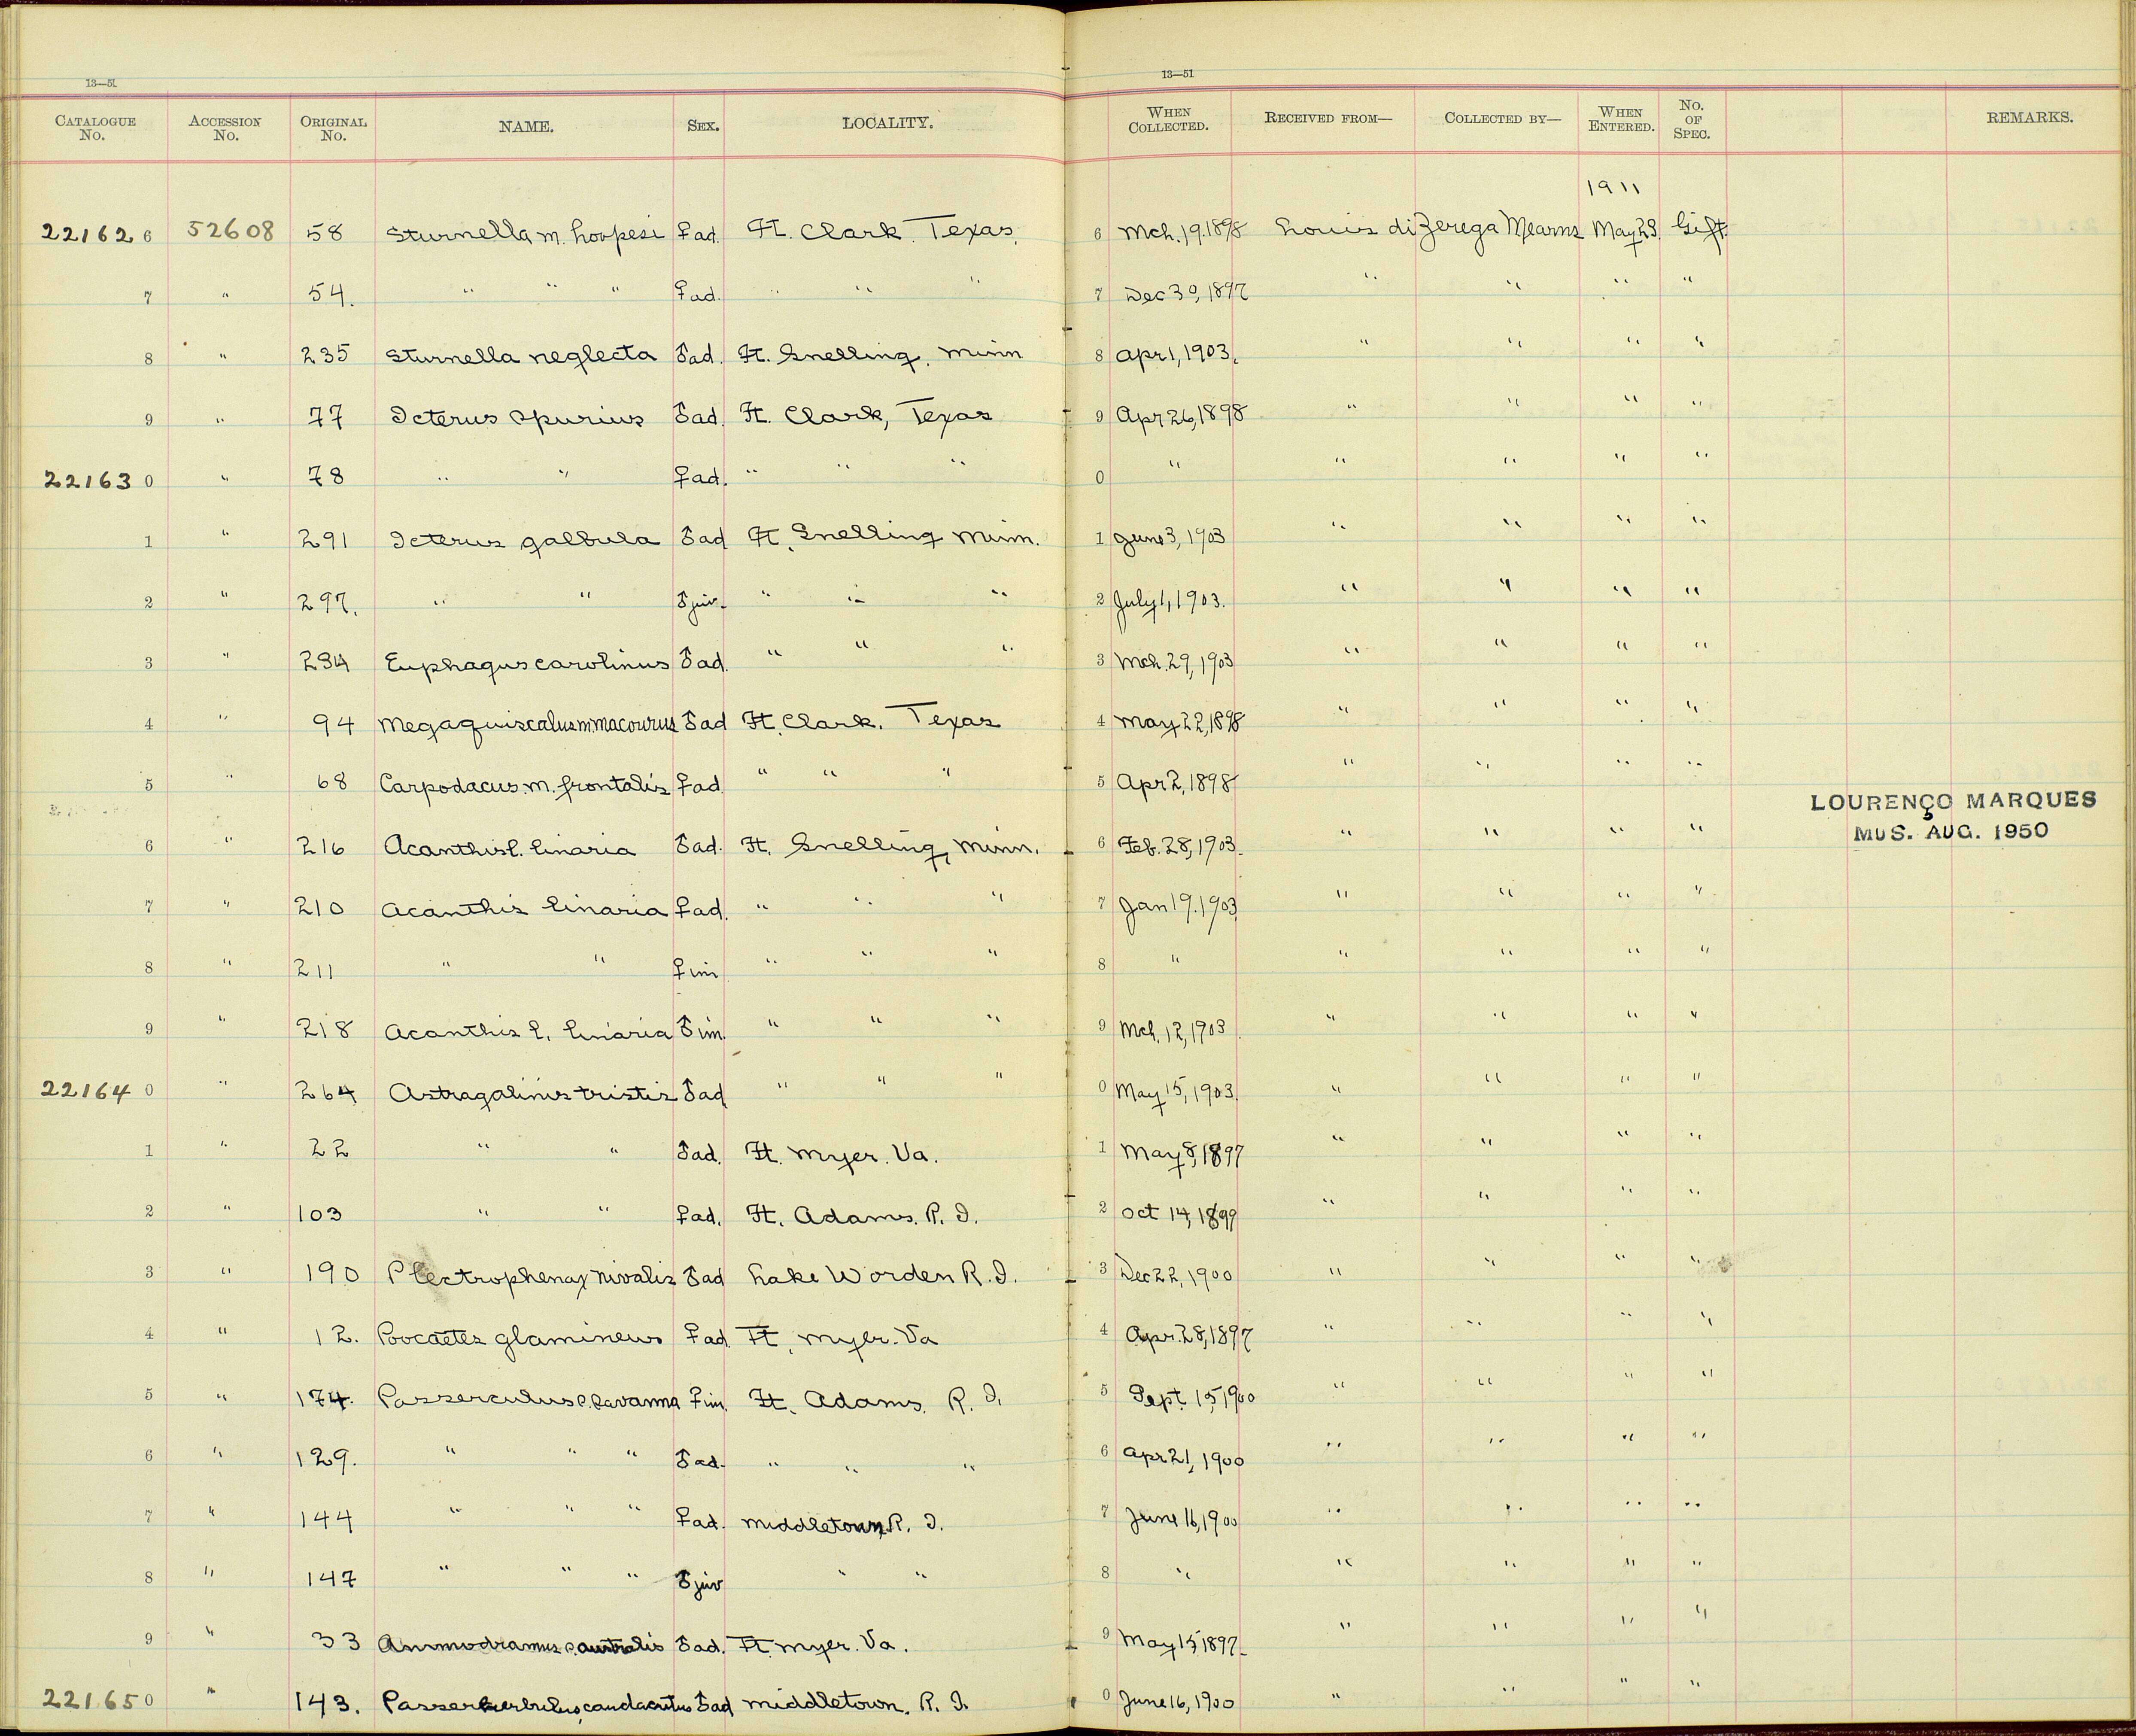 13—51
13—51
CATALOGUE No. ACCESSION No. ORIGINAL No. NAME. SEX. LOCALITY. WHEN COLLECTED. RECEIVED FROM— COLLECTED BY— WHEN ENTERED. No. OF SPEC. REMARKS.
1911
22162 6 52608 58 Sturnella m. hoopesi ♀ad. Ft. Clark. Texas. 6 Mch. 19. 1898 Louis di Zerega Mearns May 23. Gift.
7 " 54. " " " ♀ad. " " " 7 Dec 30, 1897 " " " "
8 " 235 Sturnella neglecta ♂ad. Ft. Snelling. Minn 8 Apr 1, 1903. " " " "
9 " 77 Icterus spurius ♂ad. Ft. Clark, Texas 9 Apr 26, 1898 " " " "
22163 0 " 78 " " ♀ad. " " " 0 " " " " "
1 " 291 Icterus galbula ♂ad Ft. Snelling Minn. 1 June 3, 1903 " " " "
2 " 297. " " ♂juv. " " " 2 July 1, 1903. " " " "
3 " 234 Euphagus carolinus ♂ad. " " " 3 Mch. 29, 1903 " " " "
4 " 94 Megaquiscalus m. macourus ♂ad Ft. Clark. Texas 4 May 22, 1898 " " " "
5 " 68 Carpodacus. m. frontalis ♀ad. " " " 5 Apr 2, 1898 " " " "
LOURENÇO MARQUES
MUS. AUG. 1950
6 " 216 Acanthis l. linaria ♂ad. Ft. Snelling, Minn. 6 Feb. 28, 1903. " " " "
7 " 210 Acanthis linaria ♀ad. " " " 7 Jan 19. 1903 " " " "
8 " 211 " " ♀im " " " 8 " " " " "
9 " 218 Acanthis l. linaria ♂im. " " " 9 Mch. 12, 1903 " " " "
22164 0 " 264 Astragalinus tristis ♂ad " " " 0 May 15, 1903. " " " "
1 " 22 " " ♂ad. Ft. Myer. Va. 1 May 8, 1897 " " " "
2 " 103 " " ♀ad. Ft. Adams. R. I. 2 Oct 14, 1899 " " " "
3 " 190 Plectrophenax nivalis ♂ad Lake Worden R. I. 3 Dec 22, 1900 " " " "
4 " 12. Poocaetes glamineus ♀ad. Ft. Myer. Va 4 Apr. 28, 1897 " " " "
5 " 174. Passerculus s. savanna ♀im. Ft. Adams. R. I. 5 Sept. 15, 1900 " " " "
6 " 129. " " " ♂ad. " " " 6 Apr 21, 1900 " " " "
7 " 144 " " " ♀ad. Middletown R. I. 7 June 16, 1900 " " " "
8 " 147 " " " ♂juv " " 8 " " " " "
9 " 33 Ammodramus s. australis ♂ad. Ft. Myer. Va. 9 May 15, 1897. " " " "
22165 0 " 143. Passerherbulus caudacutus ♂ad Middletown. R. I. 0 June 16, 1900 " " " "